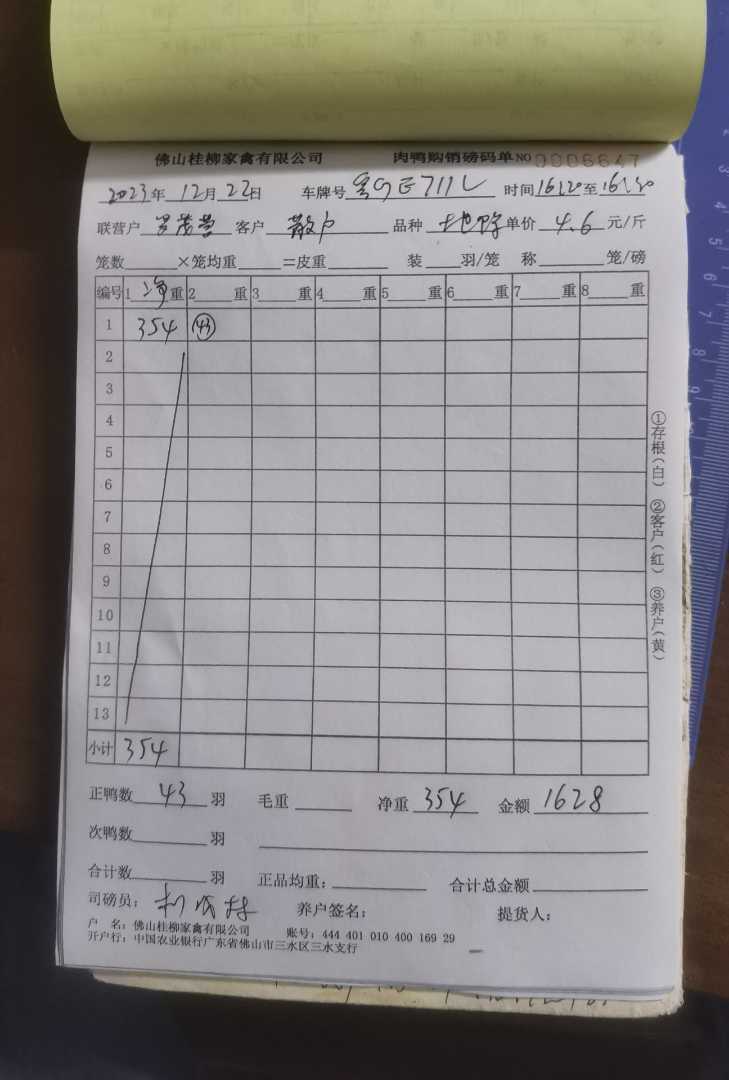 佛山桂柳家禽有限公司 肉鸭购销磅码单 NO 0006647
2023年 12月 22日 车牌号 时间 16:20 至 16:30
联营户 客户 散户 品种 土地 单价 4.6 元/斤
笼数 ×笼均重 =皮重 装 羽/笼 称 笼/磅
编号 1 净 重 2 重 3 重 4 重 5 重 6 重 7 重 8 重
1 354 43
2
3
4
5
6
7
8
9
10
11
12
13
小计 354
正鸭数 43 羽 毛重 净重 354 金额 1628
次鸭数 羽
合计数 羽 正品均重: 合计总金额
司磅员: 养户签名: 提货人:
户 名: 佛山桂柳家禽有限公司 账号: 444 401 010 400 169 29
开户行: 中国农业银行广东省佛山市三水区三水支行
①存根(白) ②客户(红) ③养户(黄)